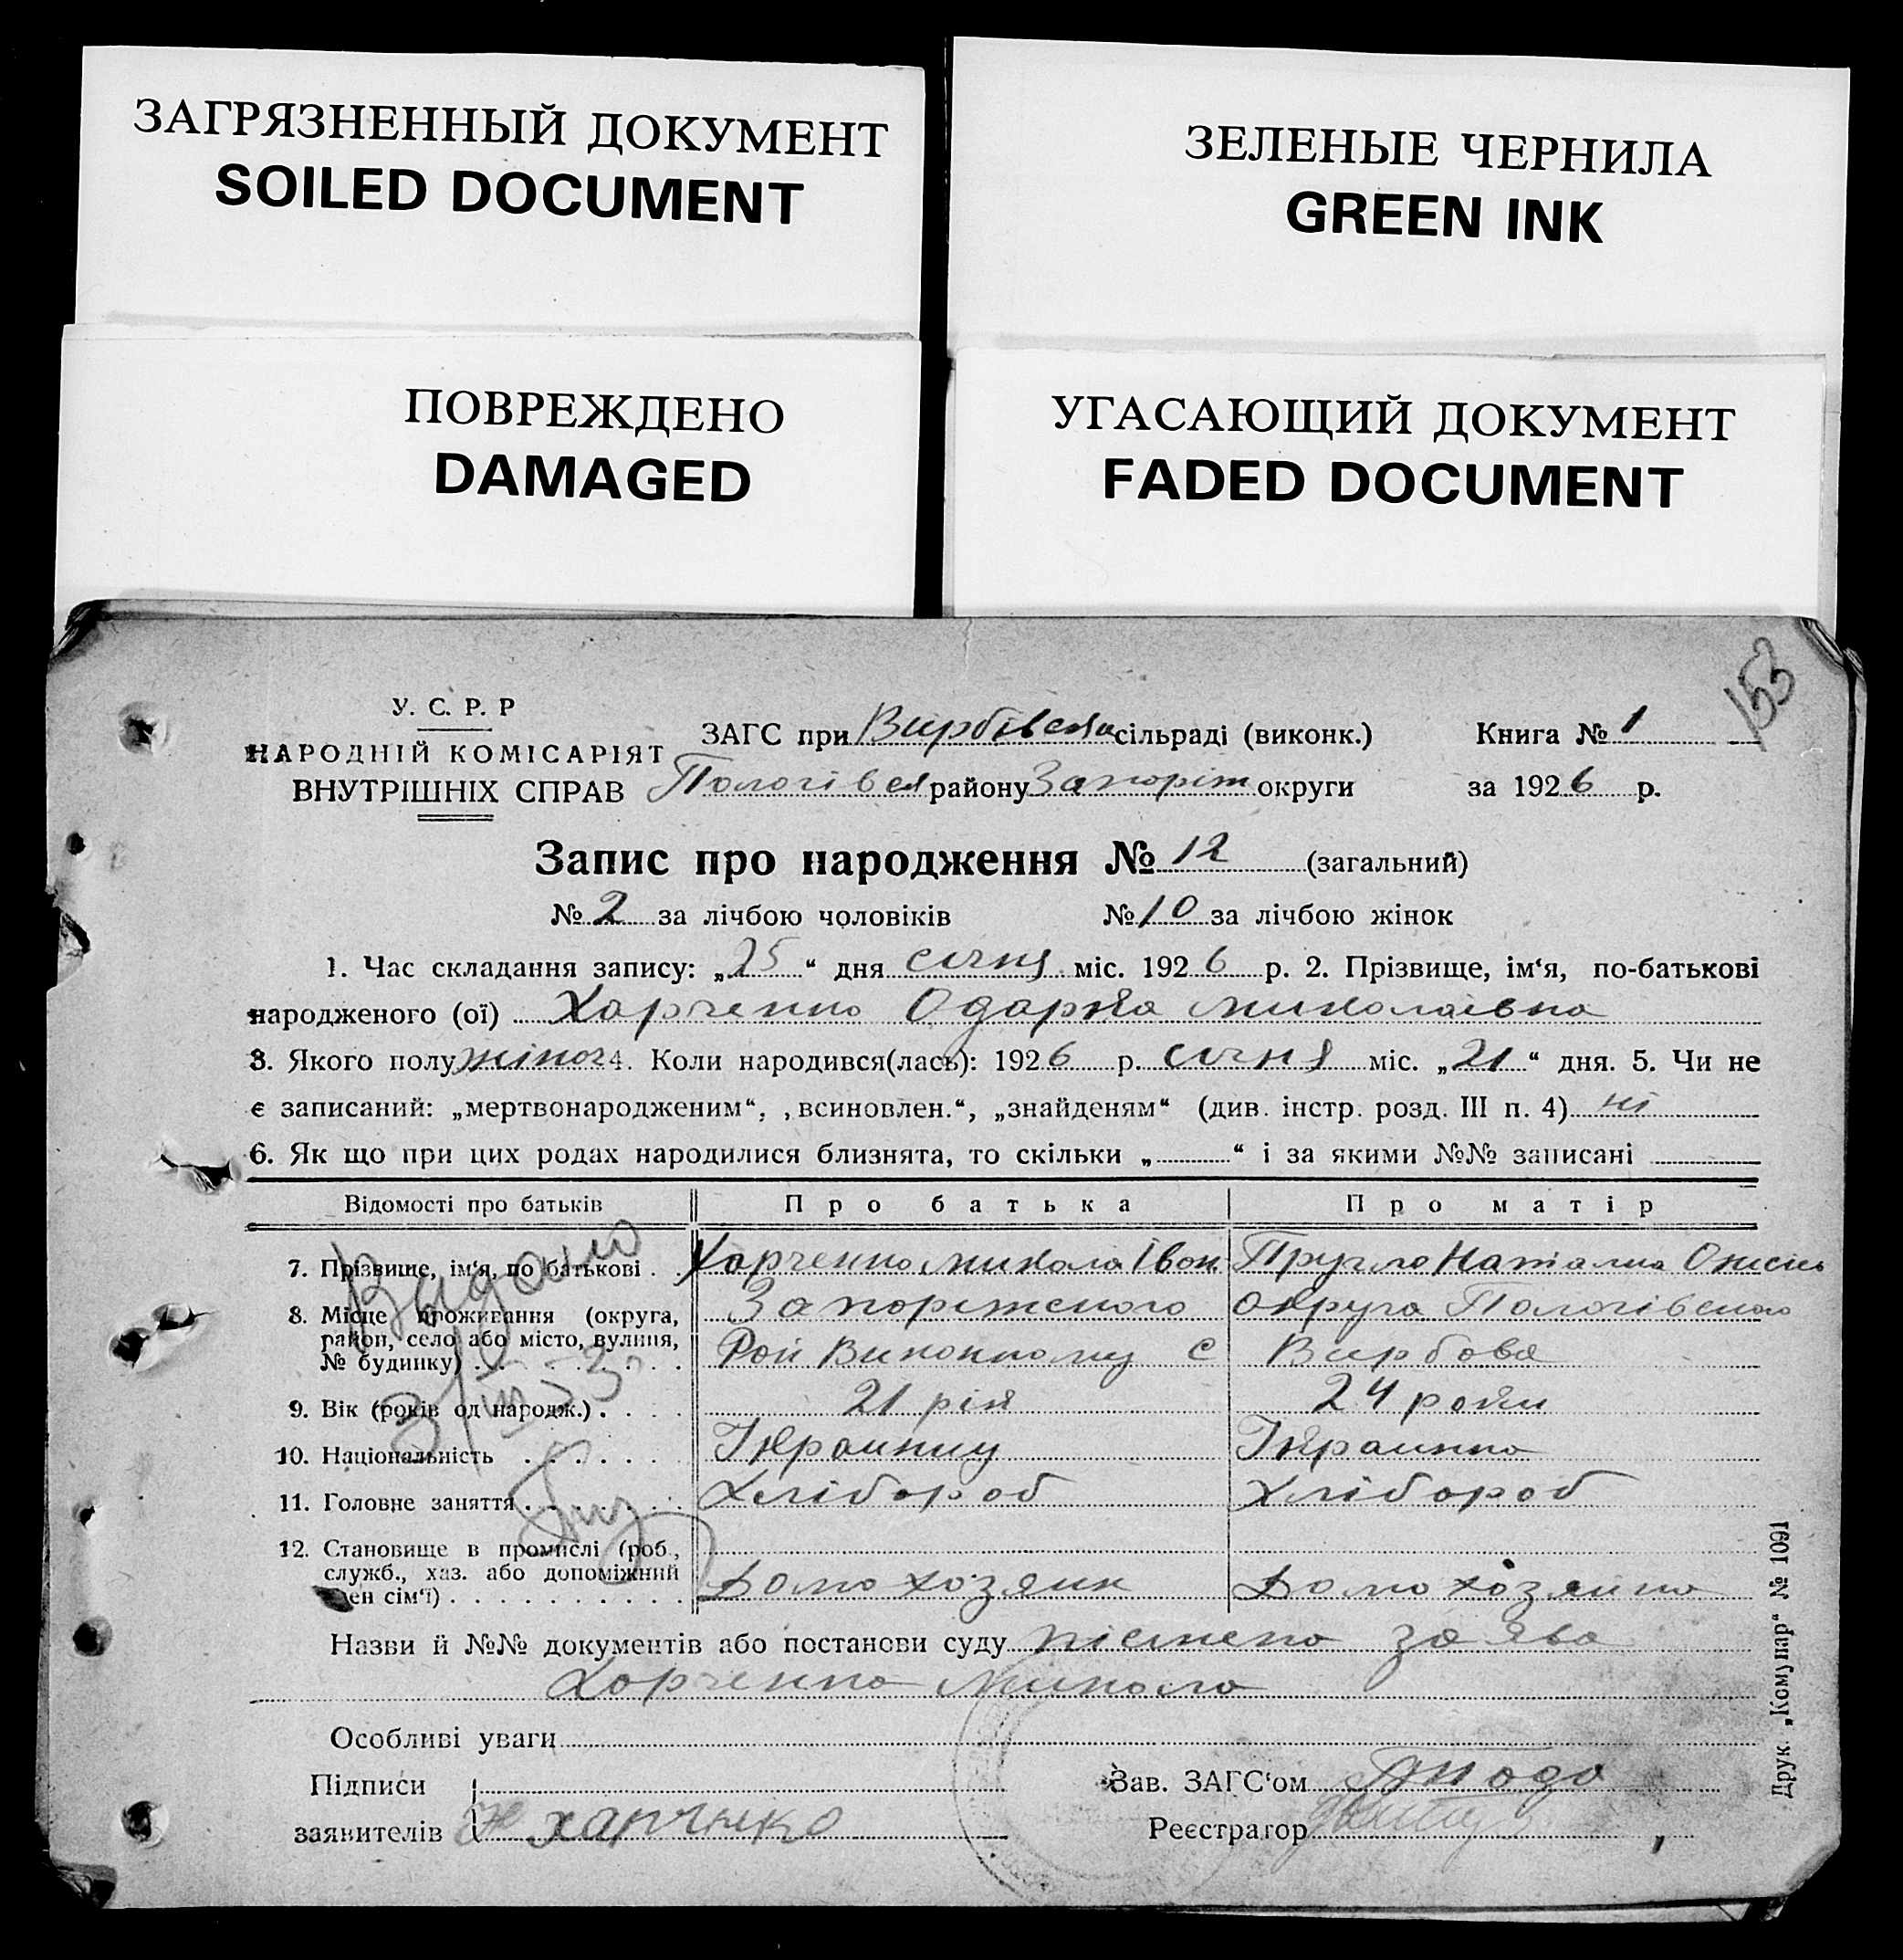 ЗАГРЯЗНЕННЫЙ ДОКУМЕНТ
SOILED DOCUMENT
ЗЕЛЕНЫЕ ЧЕРНИЛА
GREEN INK
ПОВРЕЖДЕНО
DAMAGED
УГАСАЮЩИЙ ДОКУМЕНТ
FADED DOCUMENT
153
У. С. Р. Р
НАРОДНІЙ КОМІСАРІЯТ
ВНУТРІШНІХ СПРАВ
ЗАГС при Вирбівська сільраді (виконк.) Книга № 1
Пологівся району Запоріж округи за 1926 р.
Запис про народження № 12 (загальний)
№ 2 за лічбою чоловіків № 10 за лічбою жінок
1. Час складання запису: „25“ дня січня міс. 1926 р. 2. Прізвище, ім‘я, по-батькові
народженого (ої) Харченко Одарка Миколаівна
3. Якого полу жіноч 4. Коли народився(лась): 1926 р. січня міс. „21“ дня. 5. Чи не
є записаний: „мертвонародженим“, „всиновлен.“, „знайденям“ (див. інстр. розд. III п. 4) ні
6. Як що при цих родах народилися близнята, то скільки „ “ і за якими №№ записані
Відомості про батьків Про батька Про матір
7. Прізвище, ім‘я, по батькові . . Харченко Микола Іван Наталка
8. Місце проживання (округа, Запоріжского Округа Пологівского
район, село або місто, вулиця,
№ будинку) . . . Рай Виконкому С Вирбова
9. Вік (років од народж.) . . . . 21 рік 24 роки
10. Національність . . . . . . Українец Українка
11. Головне заняття . . . . . . Хлібороб Хлібороб
12. Становище в промислі (роб.,
служб., хаз. або допоміжний
член сім‘ї) . . . . . . . . . . Домохозяин Домохозяйка
Видано
Назви й №№ документів або постанови суду заява
Харченко Микола
Особливі уваги
Підписи
заявителів Н харченко
Зав. ЗАГС‘ом
Реєстратор
Друк. „Комунар“ № 1091